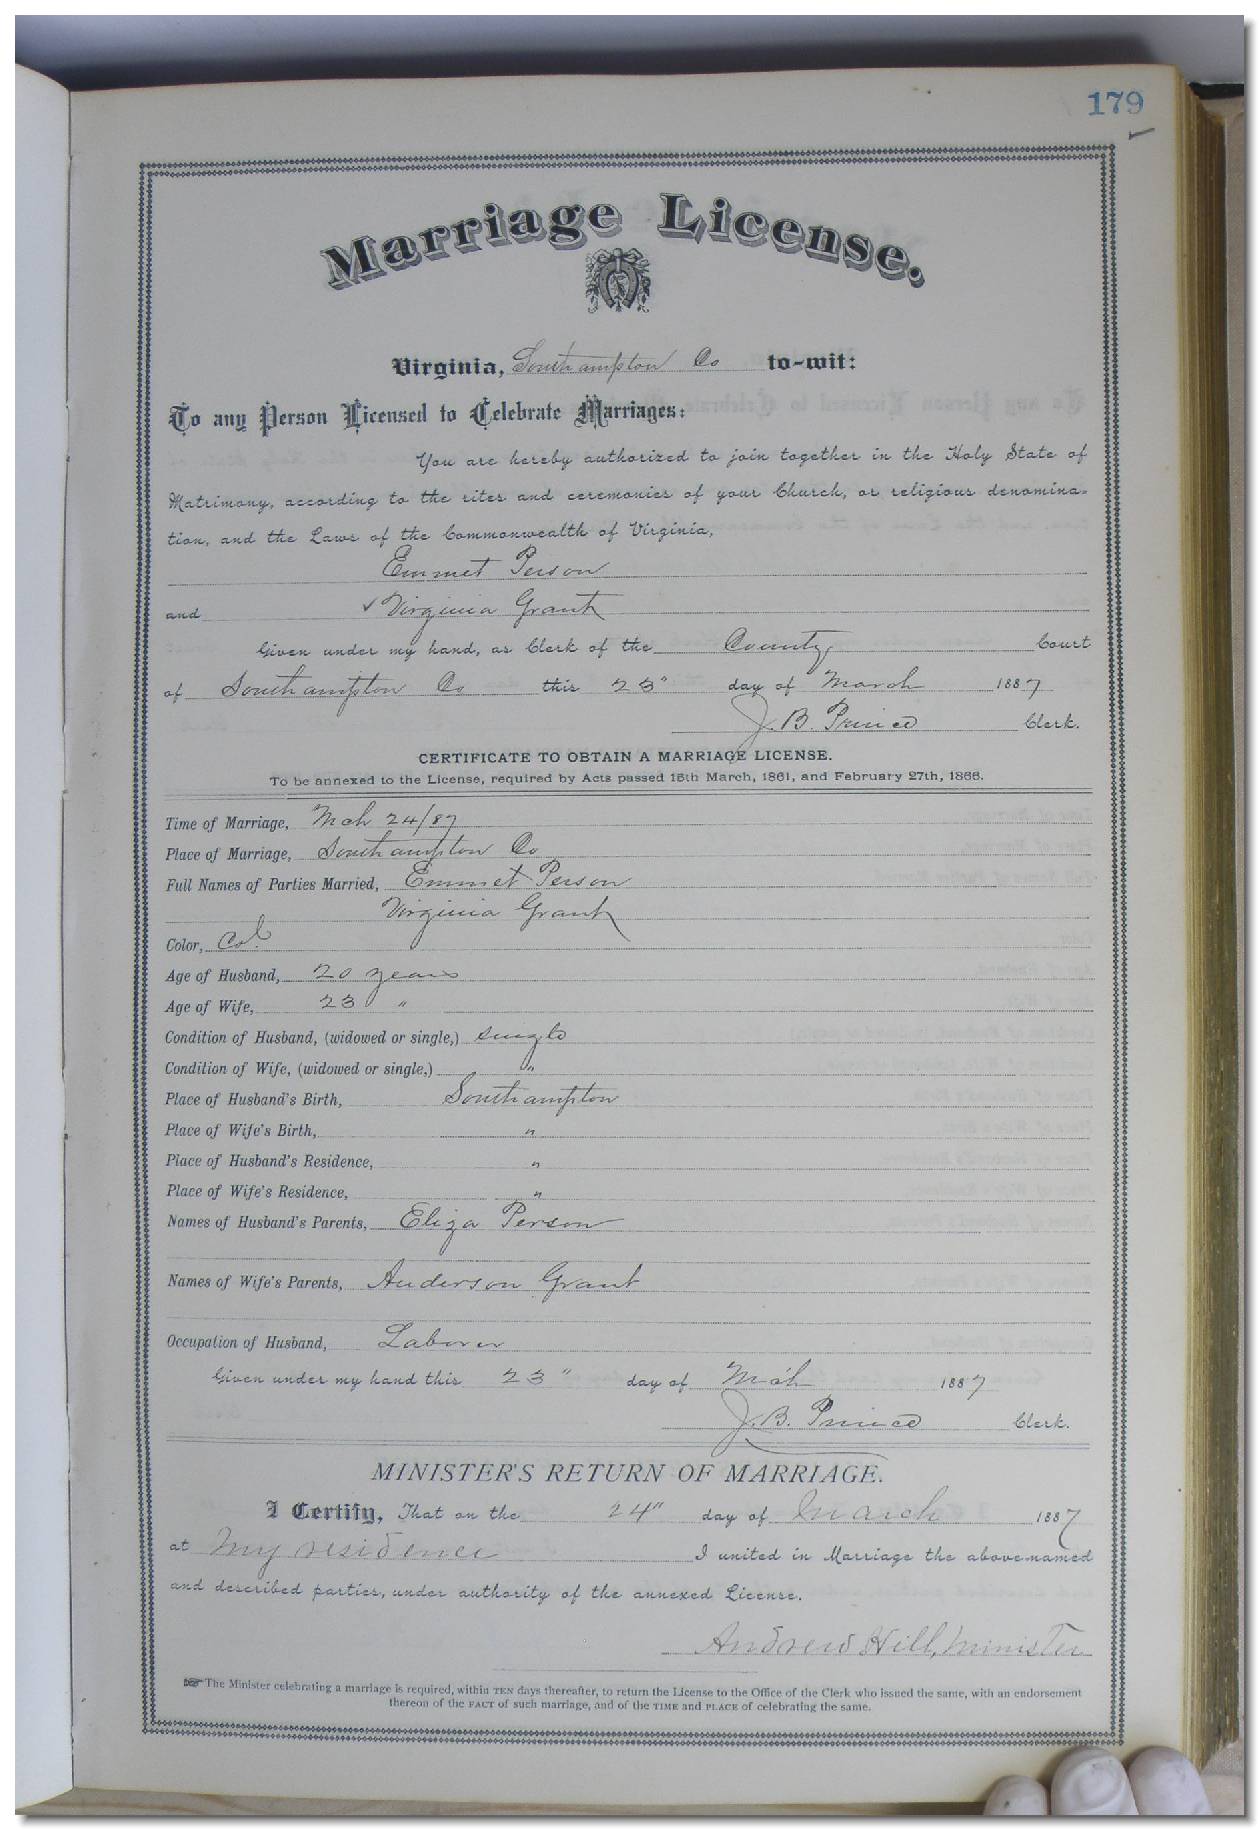 179
Marriage License.
Virginia, Southampton Co to-wit:
To any Person Licensed to Celebrate Marriages:
You are hereby authorized to join together in the Holy State of
Matrimony, according to the rites and ceremonies of your Church, or religious denomina-
tion, and the Laws of the Commonwealth of Virginia,
Emmet Person
and Virginia Grant
Given under my hand, as Clerk of the County Court
of Southampton Co this 23" day of March 1887
J. B. Prince Clerk.
CERTIFICATE TO OBTAIN A MARRIAGE LICENSE.
To be annexed to the License, required by Acts passed 15th March, 1861, and February 27th, 1866.
Time of Marriage, Mch 24/87
Place of Marriage, Southampton Co
Full Names of Parties Married, Emmet Person
Virginia Grant
Color, Col
Age of Husband, 20 years
Age of Wife, 23 "
Condition of Husband, (widowed or single,) single
Condition of Wife, (widowed or single,) "
Place of Husband's Birth, Southampton
Place of Wife's Birth, "
Place of Husband's Residence, "
Place of Wife's Residence, "
Names of Husband's Parents, Eliza Person
Names of Wife's Parents, Anderson Grant
Occupation of Husband, Laborer
Given under my hand this 23" day of Mch 1887
J. B. Prince Clerk.
MINISTER'S RETURN OF MARRIAGE.
I Certify, That on the 24" day of March 1887
at My residence I united in Marriage the above-named
and described parties, under authority of the annexed License.
Andrew Hill, minister
☞The Minister celebrating a marriage is required, within TEN days thereafter, to return the License to the Office of the Clerk who issued the same, with an endorsement
thereon of the FACT of such marriage, and of the TIME and PLACE of celebrating the same.